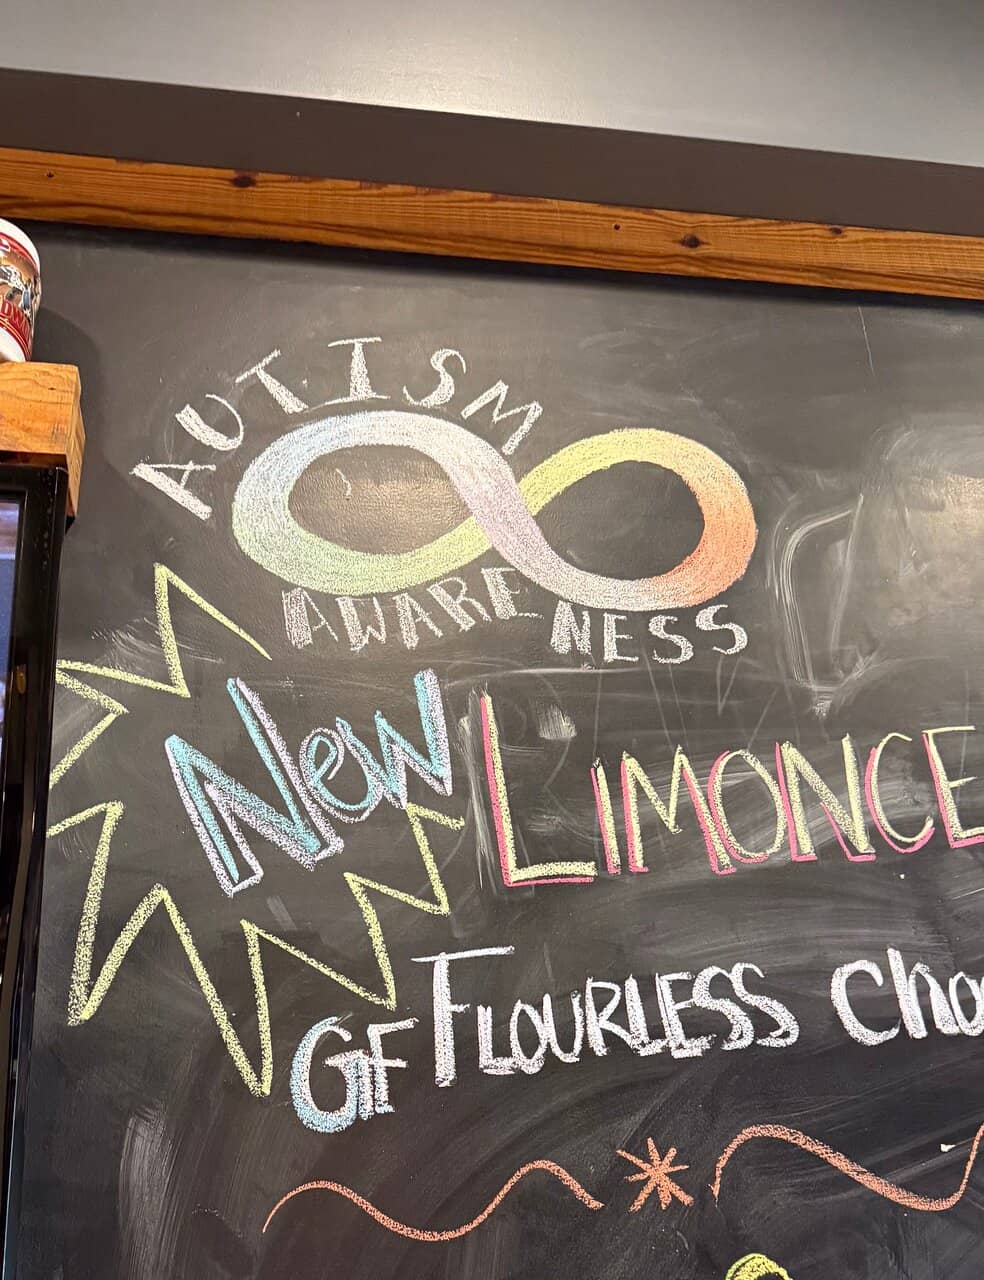 AUTISM
AWARENESS
New LIMONCE
GF FLOURLESS Choc